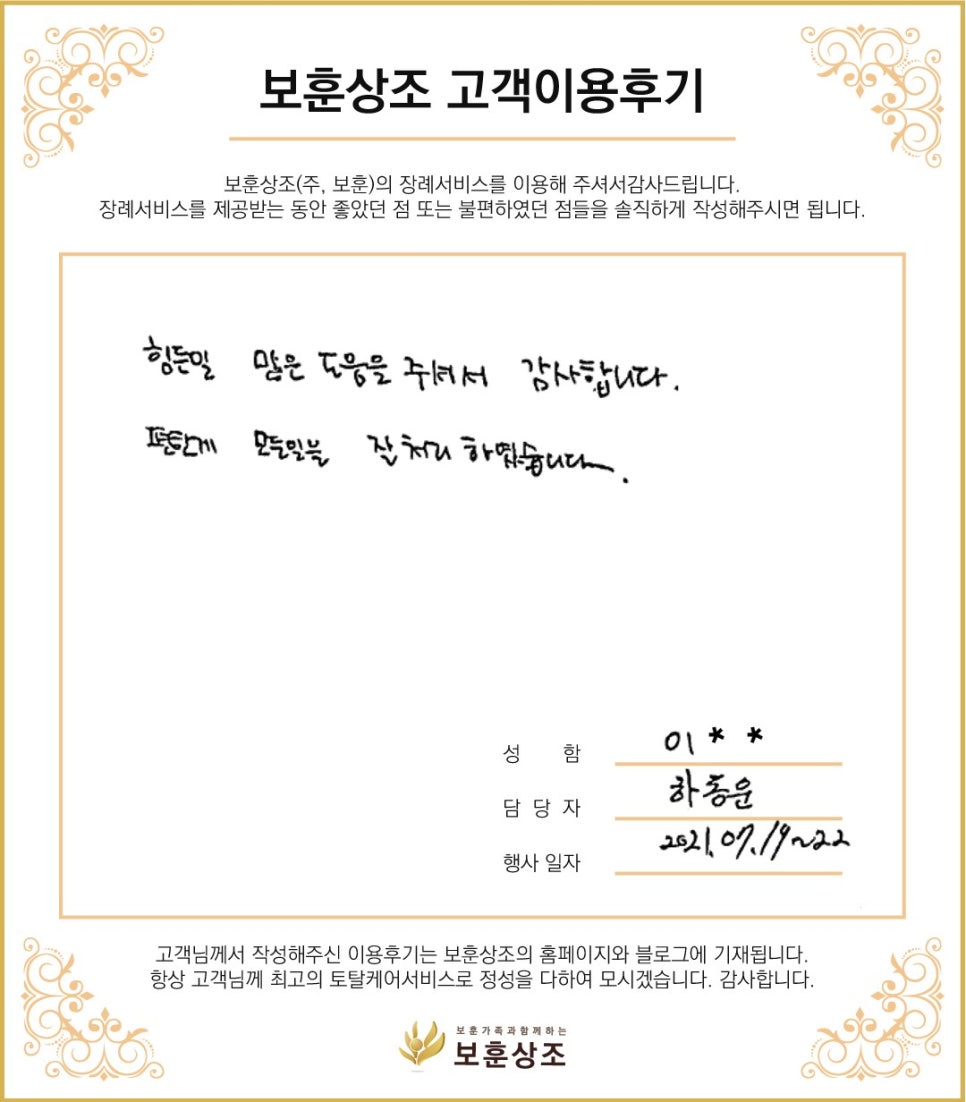 보훈상조 고객이용후기
보훈상조(주, 보훈)의 장례서비스를 이용해 주셔서감사드립니다.
장례서비스를 제공받는 동안 좋았던 점 또는 불편하였던 점들을 솔직하게 작성해주시면 됩니다.
힘든일 많은 도움을 주셔서 감사합니다.
모든일을 잘 처리 하였습니다.
성 함 이 * *
담 당 자 하동운
행사 일자 2021.07.19~22
고객님께서 작성해주신 이용후기는 보훈상조의 홈페이지와 블로그에 기재됩니다.
항상 고객님께 최고의 토탈케어서비스로 정성을 다하여 모시겠습니다. 감사합니다.
보훈가족과함께하는
보훈상조